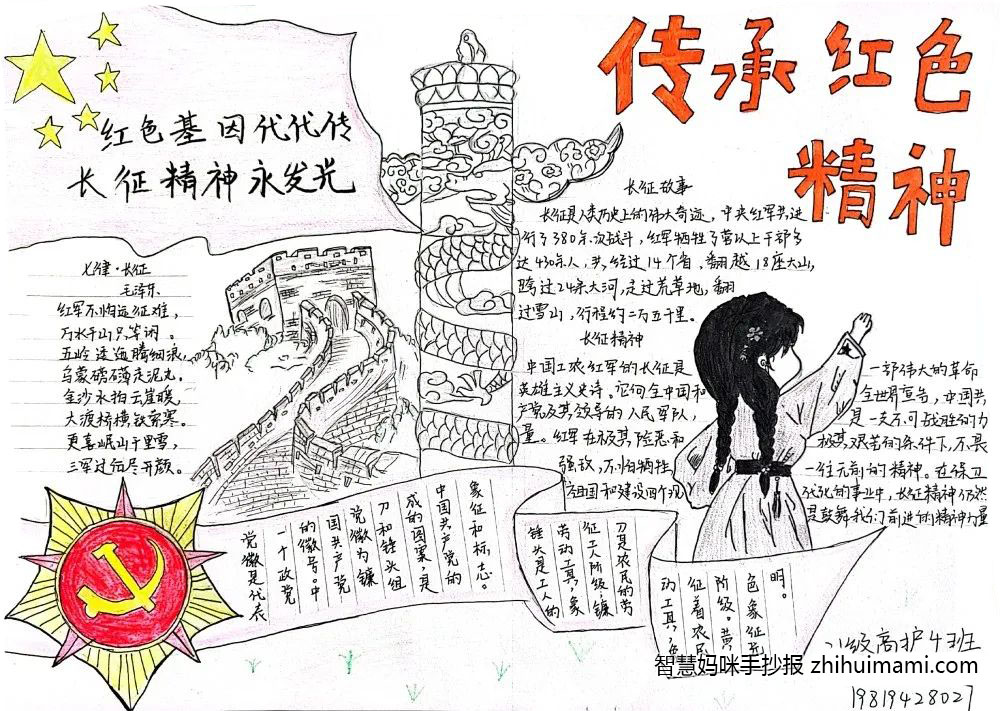 传承红色
精神
红色基因代代传
长征精神永发光
七律·长征
毛泽东
红军不怕远征难，
万水千山只等闲。
五岭逶迤腾细浪，
乌蒙磅礴走泥丸。
金沙水拍云崖暖，
大渡桥横铁索寒。
更喜岷山千里雪，
三军过后尽开颜。
长征故事
长征是人类历史上的伟大奇迹，中央红军共进
行了380余次战斗，红军牺牲了营以上干部多
达430余人，共经过14个省，翻越18座大山，
跨过24条大河，走过荒草地，翻
过雪山，行程约二万五千里。
长征精神
中国工农红军的长征是一部伟大的革命
英雄主义史诗。它向全中国和全世界宣告，中国共
产党及其领导的人民军队，是一支不可战胜的力
量。红军在极其险恶和极其艰苦的条件下，不畏
强敌，不怕牺牲一往无前的精神。在保卫
祖国和建设四个现代化的事业中，长征精神仍然
是鼓舞我们前进的精神力量
党徽是代表
一个政党
的徽号。中
国共产党
党徽为镰
刀和锤头组
成的图案，是
中国共产党的
象征和标志。
锤头是工人的
劳动工具，象
征工人阶级，镰
刀是农民的劳
动工具，
征着农民
阶级。黄
色象征光
明。
级高护4班
19819428027
智慧妈咪手抄报 zhihuimami.com